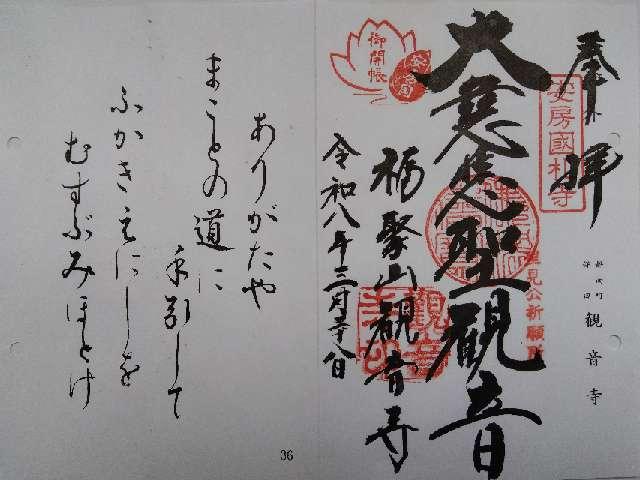 奉拝
安房國札
大慈悲聖観音
里見公祈願所
観音寺
御開帳
福聚山観音寺
令和八年三月
ありがたや
まことの道に
手引して
ふかきえにしを
むすぶみほとけ
36